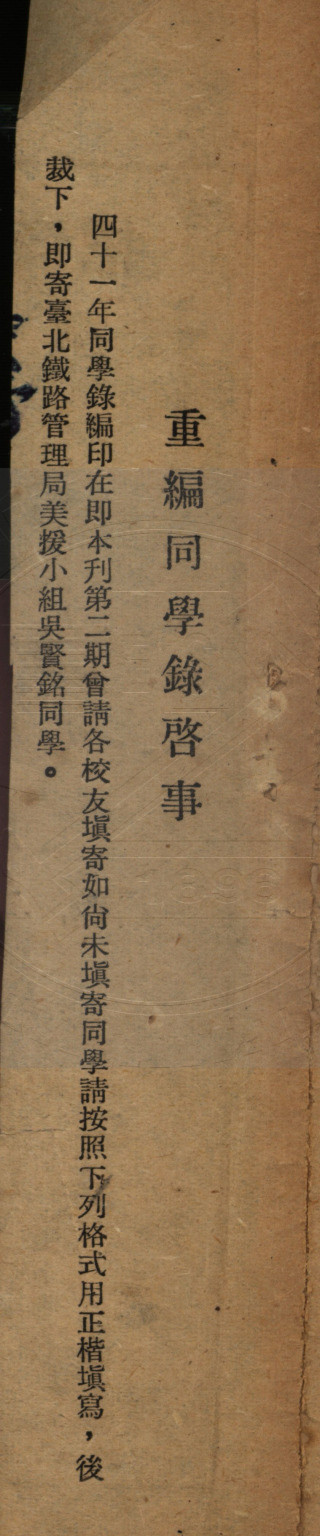 重編同學錄啓事
四十一年同學錄編印在即本刊第二期曾請各校友塡寄如尙未塡寄同學請按照下列格式用正楷塡寫，後
裁下，即寄臺北鐵路管理局美援小組吳賢銘同學。